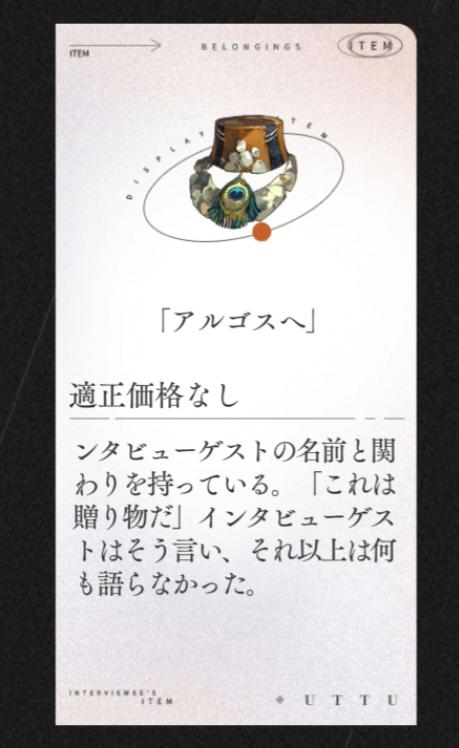 ITEM
BELONGINGS
ITEM
DISPLAY ITEM
「アルゴスへ」
適正価格なし
ンタビューゲストの名前と関
わりを持っている。「これは
贈り物だ」インタビューゲス
トはそう言い、それ以上は何
も語らなかった。
INTERVIEWEE'S
ITEM
UTTU